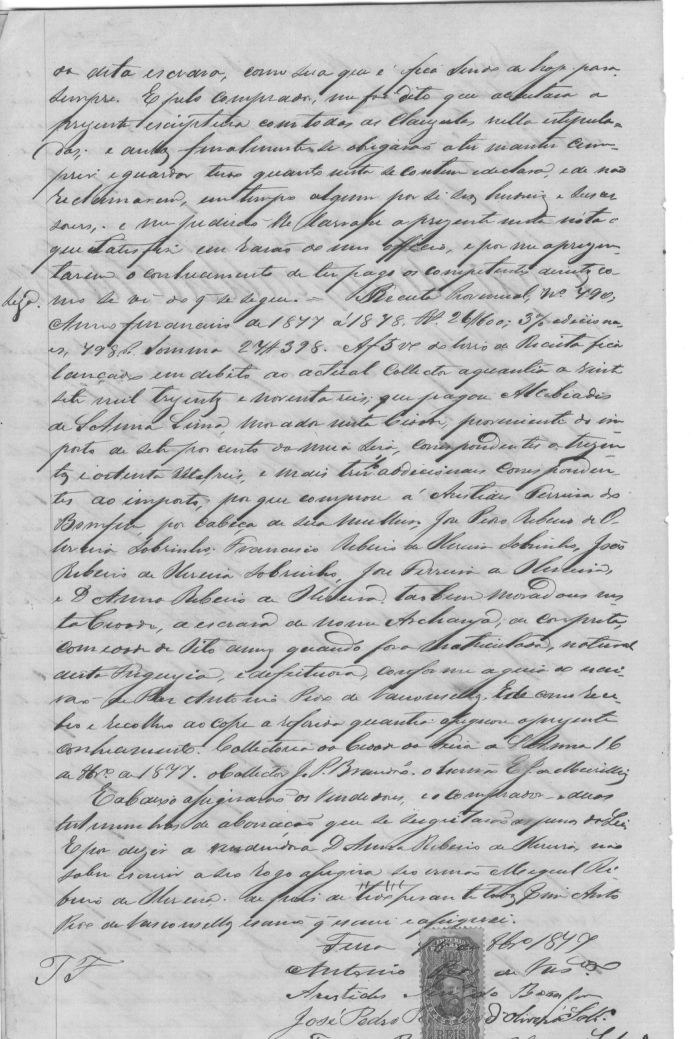 da dita escrava, como sua que é fica sendo de hoje para
sempre. E pelo comprador, me foi dito que aceitava a
presente escriptura com todas as clausulas nella estipula-
das; e ambos finalmente se obrigavão a ter manter cum-
prir e guardar tudo quanto nesta se contem e declara, e de não
reclamarem, em tempo algum por si seus herdeiros e suces
sores, e me pedirão lhe lavrasse a presente nesta nota o
que satisfiz em razão de meu officio, e por me apresen-
tarem o conhecimento de ter pago os competentes direitos co-
mo se vê do q̃ se segue. = Receita Provincial, Nº 490;
digo.
Anno financeiro de 1877 á 1878. Rs. 26$600; 3% addiciona-
es, 798 rs. Somma 27$398. Af 5 vº do livro de Receita fica
lançado em debito ao actual Collector a quantia de vinte
sete mil trezentos e noventa reis, que pagou Alcebiades
de SAnna Lima, morador nesta Cidade, proveniente do im-
posto de sete por cento da meia Sisa, correspondentes a trezen-
tos e oitenta mil reis, e mais tres % addicionais corresponden-
tes ao imposto, por que comprou a Aristides Ferreira do
Bomfim por cabeça de sua mulher, Jose Pedro Ribeiro de O-
liveira Sobrinho, Francisco Ribeiro de Oliveira Sobrinho, João
Ribeiro de Oliveira Sobrinho, Jose Ferreira de Oliveira,
e D Anna Ribeiro de Oliveira, tambem moradores nes
ta Cidade, a escrava de nome Archanja, de cor preta,
com edade de oito annos quando fora matriculada, natural
desta Freguezia, e de feitura, conforme a guia do escri-
vão de Paz Antonio Pires de Vasconcellos. E de como rece-
beo e recolheo ao cofre a referida quantia assignou o presente
conhecimento. Collectoria da Cidade da Feira de SAnna 16
de 8brº de 1877. o Collector J. P. Brandão. o Escrivão E. J. de Meirelles
E abaixo assignarão os vendedores, e o comprador e duas
testemunhas de abonação que se sugeitarão as penas da Lei.
E por dizer a vendedora D Anna Ribeiro de Oliveira, não
saber escrever a seo rogo assignou seo irmão Miguel Ri
beiro de Oliveira. de pois de lido perante todos Eu Anto
Pires de Vasconcellos escrivão q̃ escrevi e assignei.
Feira de 8brº 1877
TF
Antonio de Vasc
Aristides do Bomfim
José Pedro d'Oliveira Sobr.
REIS